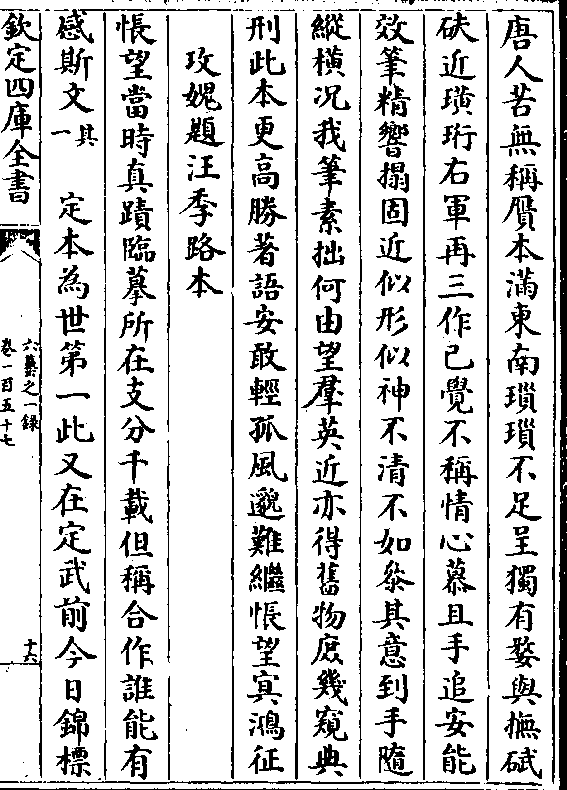 唐人苦無稱贗本滿東南瑣瑣不足呈獨有婺與撫碔
砆近璜珩右軍再三作已覺不稱情心慕且手追安能
效筆精響搨固近似形似神不清不如叅其意到手隨
縱横况我筆素拙何由望羣英近亦得舊物庶幾窺典
刑此本更高勝著語安敢輕孤風邈難繼悵望㝠鴻征
攻媿題汪季路本
悵望當時真蹟臨摹所在支分千載但稱合作誰能有
感斯文其一 定本為世第一此又在定武前今日錦標
欽定四庫全書
六藝之一錄
卷一百五十七
十六